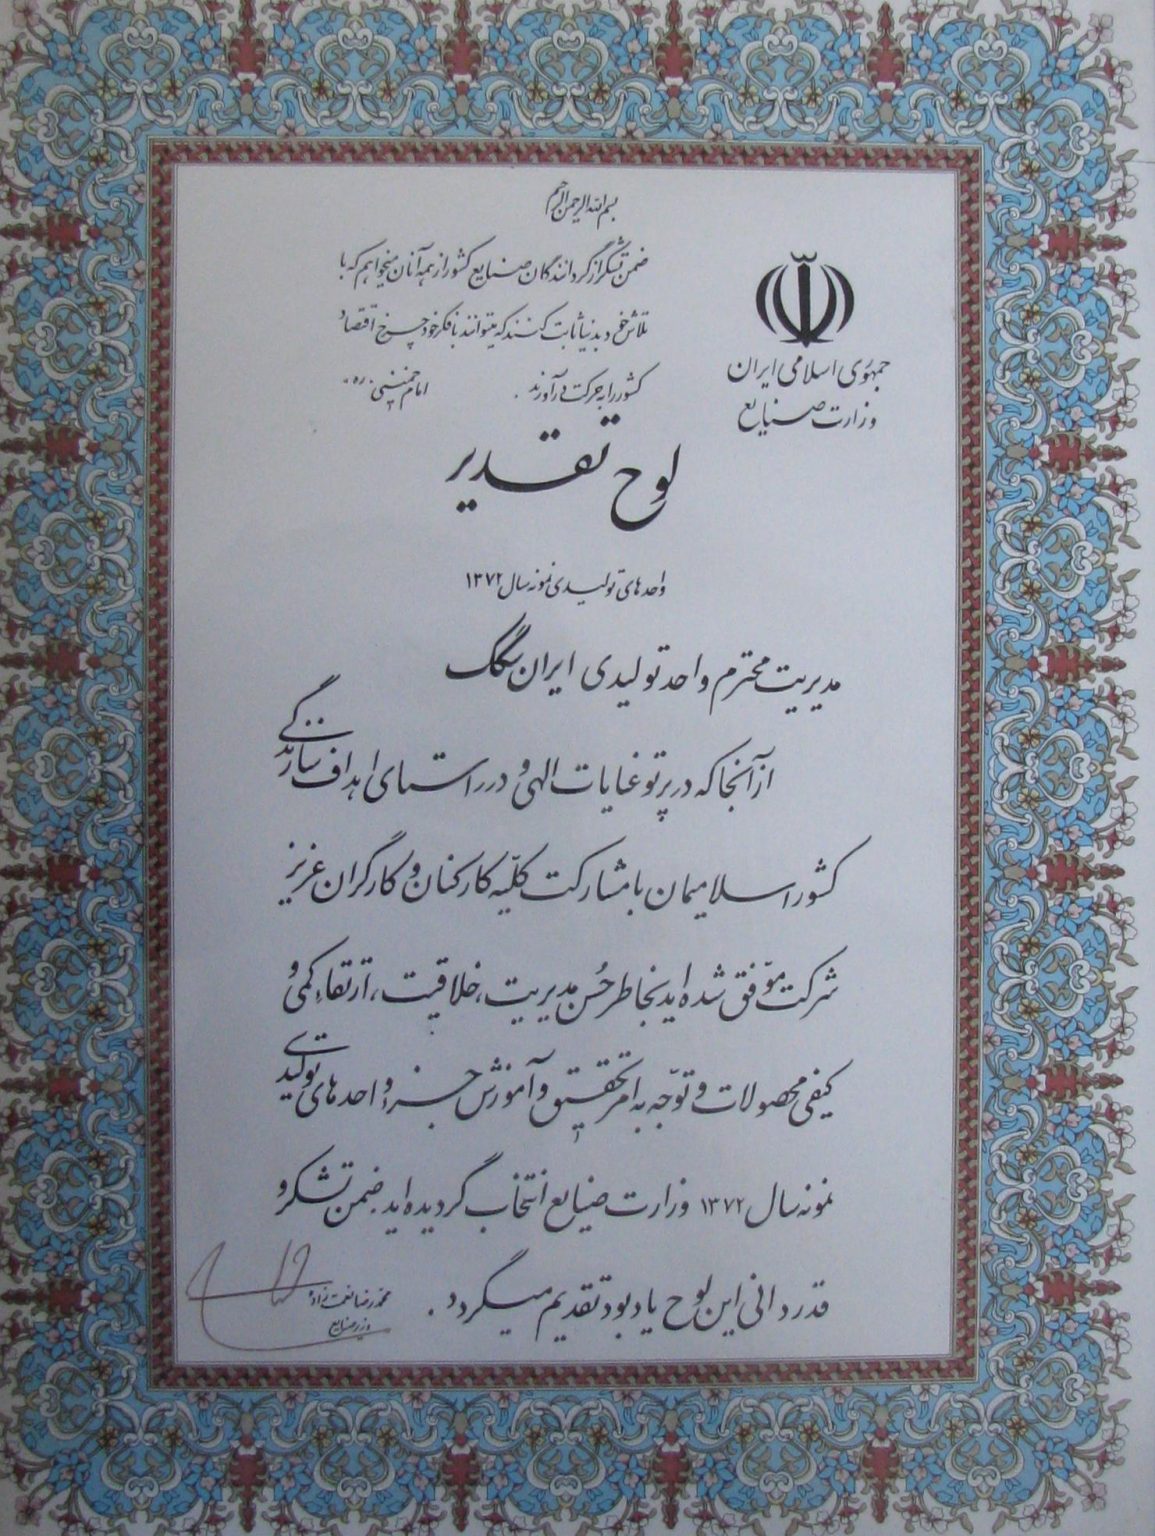 بسم الله الرحمن الرحیم
ضمن تشکر از گردانندگان صنایع کشور از همه آنان میخواهم که با
تلاش خود بدنیا ثابت کنند که میتوانند با فکر خود چرخ اقتصاد
کشور را به حرکت درآورند.
امام خمینی «ره»
جمهوری اسلامی ایران
وزارت صنایع
لوح تقدیر
واحدهای تولیدی نمونه سال ۱۳۷۲
مدیریت محترم واحد تولیدی ایران سگک
از آنجا که در پرتو عنایات الهی و در راستای اهداف سازندگی
کشور اسلامیمان با مشارکت کلّیه کارکنان و کارگران عزیز
شرکت موّفق شده اید بخاطر حُسن مدیریت، خلاقیت، ارتقاء کمی و
کیفی محصولات و توّجه به امر تحقیق و آموزش جزء واحدهای تولیدی
نمونه سال ۱۳۷۲ وزارت صنایع انتخاب گردیده اید ضمن تشکر و
قدردانی این لوح یادبود تقدیم میگردد.
محمدرضا نعمت زاده
وزیر صنایع